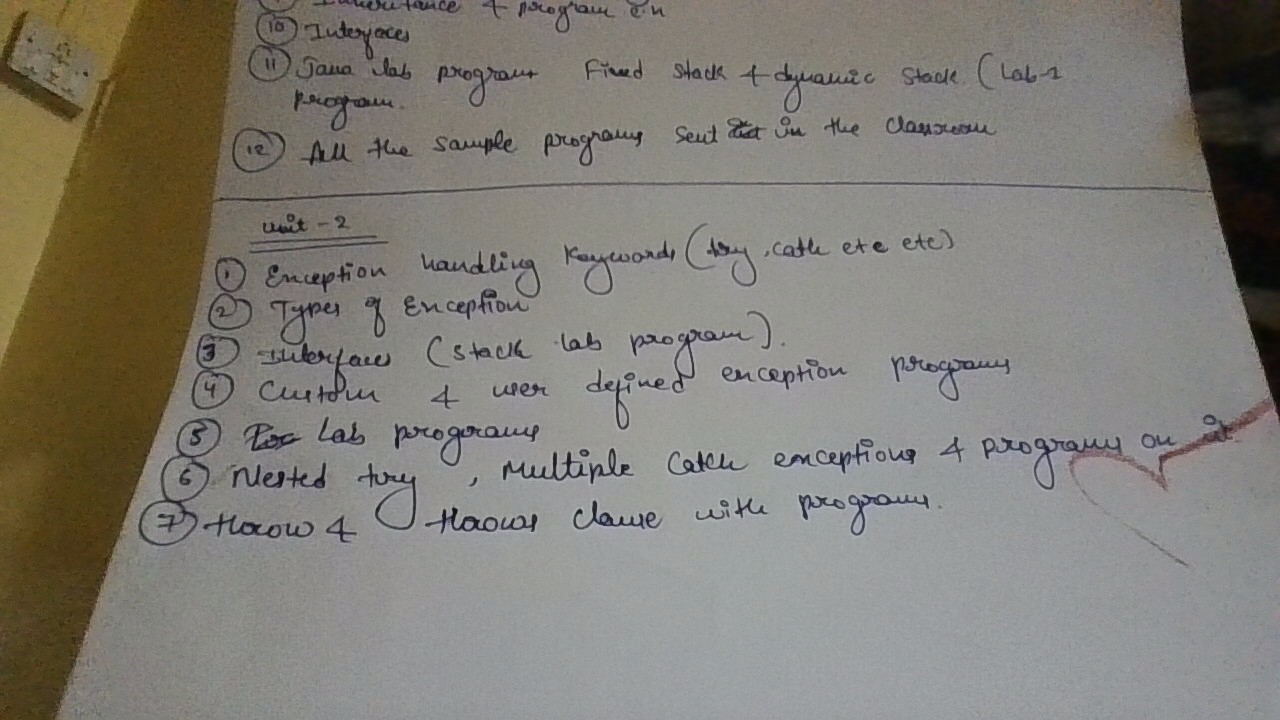 Inheritance & program on
10 Interfaces
11 Java lab program Fixed stack & dynamic stack (Lab-1
program.
12 All the sample programs sent in the classroom
Unit - 2
1 Exception handling keywords (try, cath etc etc)
2 Types of Exception
3 Interfaces (stack lab program).
4 Custom & user defined exception programs
5 Lab programs
6 Nested try, Multiple Catch exceptions & programs on it
7 throw & throws clause with programs.